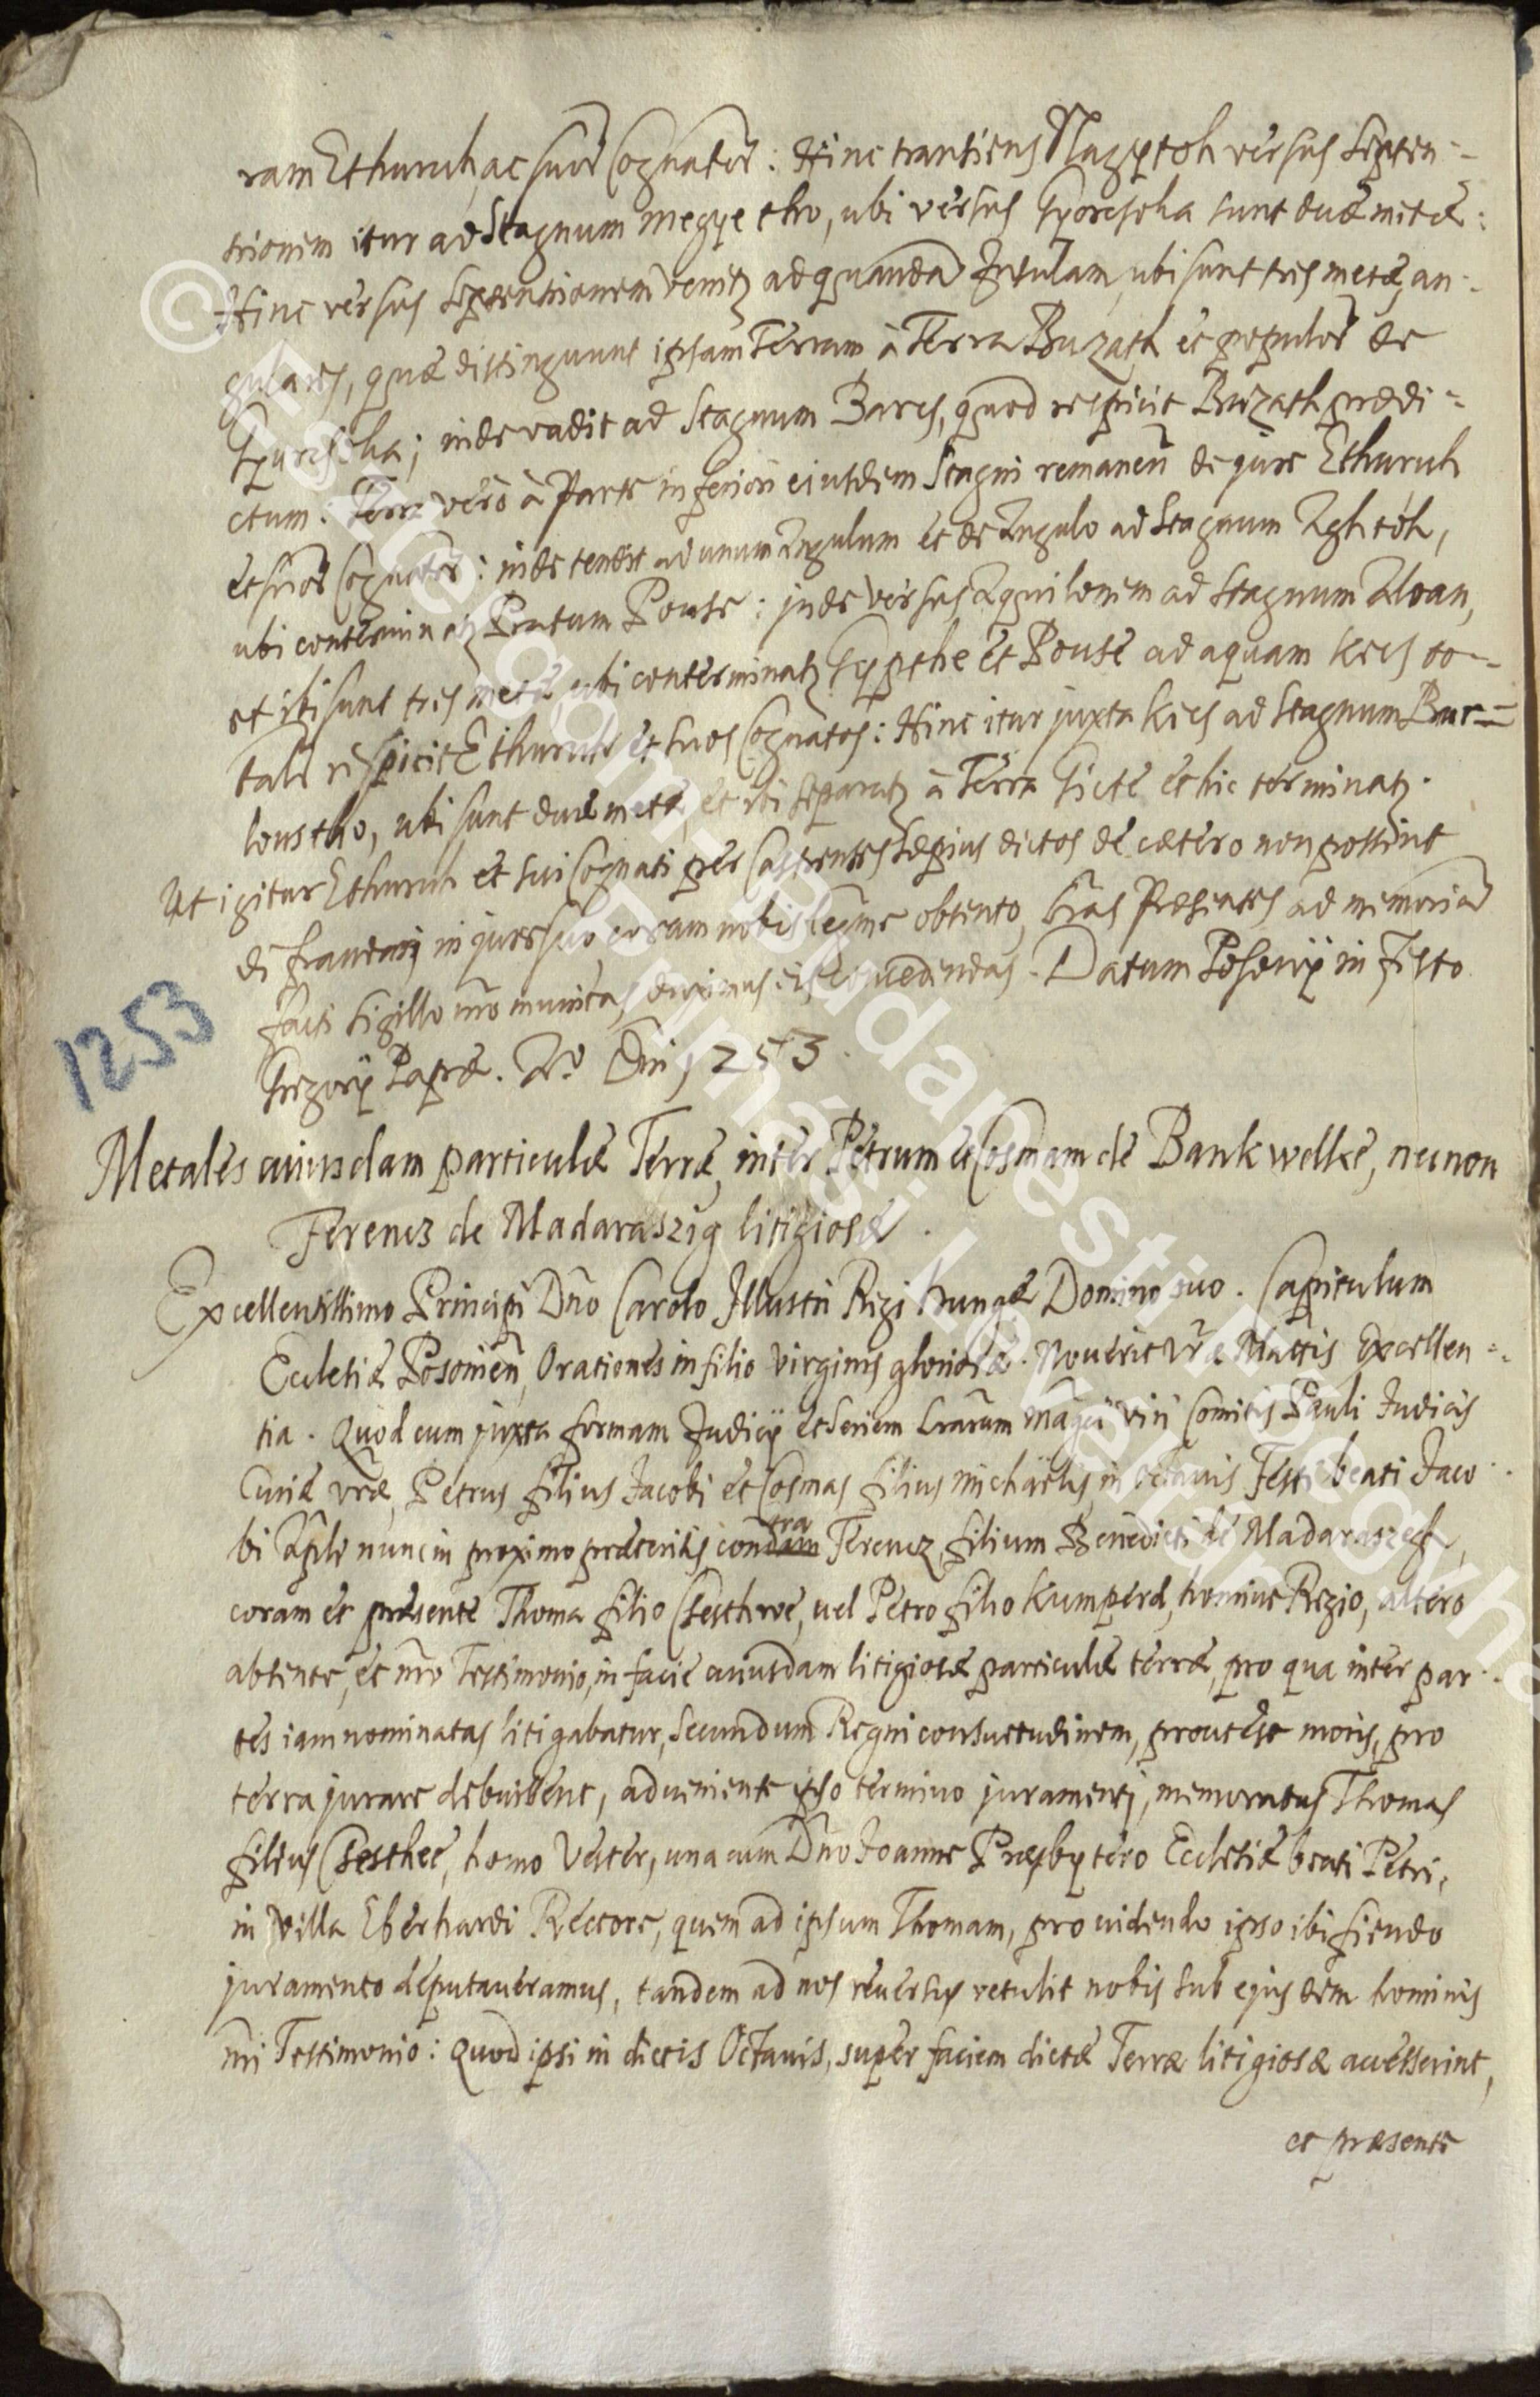 ram Ethuruh, ac suor Cognator: Hinc transiens Nagytoh versus Septen=
trionem itur ad Stagnum Megye tho, ubi versus Gyoresoha sunt duæ metæ:
Hinc versus Septentrionem venitz ad quanda Insulam, ubi sunt tres metæ, an-
gulares, quæ distinguunt ipsam Terram à Terra Buzath et populor de
inde vadit ad Stagnum Barcs, quod respicit Buzath prædi=
ctum. Terra vero à Parte inferiori eiusdem Stagni remanen de jure Ethuruh
et suor Cognator: inde tendit ad unum Angulum et de Angulo ad Stagnum Agh toh,
ubi conterminatz Pratum Pouse: inde versus Aquilonem ad Stagnum Aloan,
et ibi sunt tres metæ, ubi conterminatz Gypthe et Pouse ad aquam Kecs to-
tali respicit Ethuruh et suos Cognatos: Hinc itur juxta Kecs ad Stagnum Bur=
lous tho, ubi sunt duæ metæ, et ibi separatz à Terra et hic terminatz.
Ut igitur Ethuruh et sui Cognati per Castrenses sæpius dictos de cætero non possint
in jure suo, coram nobis legime obtento, Lras Præsentes ad memoria
facti sigillo nro munitas, duximus eis concedendas. Datum Posonij in festo
Gregorij Papæ. Ao Dni 1253.
1253
Metales cuiusdam particulæ Terræ, inter Petrum et Cosmam de Bankwelke, necnon
Ferencz de Madaraszig litigiosæ.
Excellentissimo Principi Dno Carolo Illustri Regi Hungæ Domino suo. Capitulum
Ecclesiæ Posonien, Orationes in filio Virginis gloriosæ. Noverit Vræ Mattis Excellen=
tia. Quod cum juxta formam Judicij et seriem Lrarum Magci viri Comitis Pauli Judicis
Curiæ vræ, Petrus filius Jacobi et Cosmas filius Michaëlis, in Octavis Festi beati Jaco-
bi Apli nunc in proximo præteritis condam tra Ferencz, filium Benedicti de Madaraszegh,
coram et præsente Thoma filio Csesthwe, vel Petro filio Kumperd, homine Regio, altero
absente, et nro Testimonio, in facie cuiusdam litigiosæ particulæ terræ, pro qua inter par-
tes iam nominatas litigabatur, secundum Regni consuetudinem, prout est moris, pro
terra jurare debuissent, adueniente ipso termino juramenti, memoratus Thomas
filius Csesthee, homo Vester, una cum Dno Joanne Præsbytero Ecclesiæ beati Petri,
in Villa Eberhardi Rectore, quem ad ipsum Thomam, pro uidendo ipso ibi fiendo
juramento deputaueramus, tandem ad nos reuersus retulit nobis sub ejusdem hominis
nri Testimonio: Quod ipsi in dictis Octauis, super faciem dictæ Terræ litigiosæ accesserint,
et præsente
© Esztergom-Budapesti Főegyházm
Prímási Levéltár